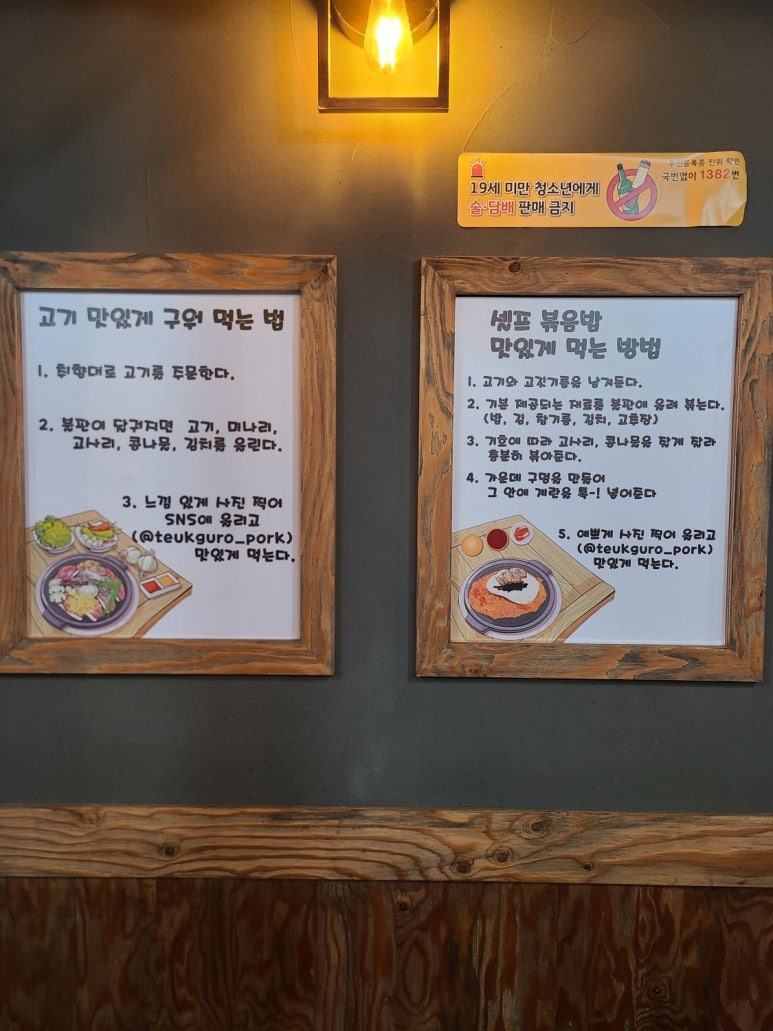 19세 미만 청소년에게
술·담배 판매 금지
주민등록증 진위 확인
국번없이 1382번
고기 맛있게 구워 먹는 법
1. 취향대로 고기를 주문한다.
2. 불판이 달궈지면 고기, 미나리,
고사리, 콩나물, 김치를 올린다.
3. 느낌 있게 사진 찍어
SNS에 올리고
(@teukguro_pork)
맛있게 먹는다.
셀프 볶음밥
맛있게 먹는 방법
1. 고기와 고깃기름을 남겨둔다.
2. 기본 제공되는 재료를 불판에 올려 볶는다.
(밥, 김, 참기름, 김치, 고추장)
3. 기호에 따라 고사리, 콩나물을 잘게 잘라
충분히 볶아둔다.
4. 가운데 구멍을 만들어
그 안에 계란을 톡-! 넣어둔다
5. 예쁘게 사진 찍어 올리고
(@teukguro_pork)
맛있게 먹는다.